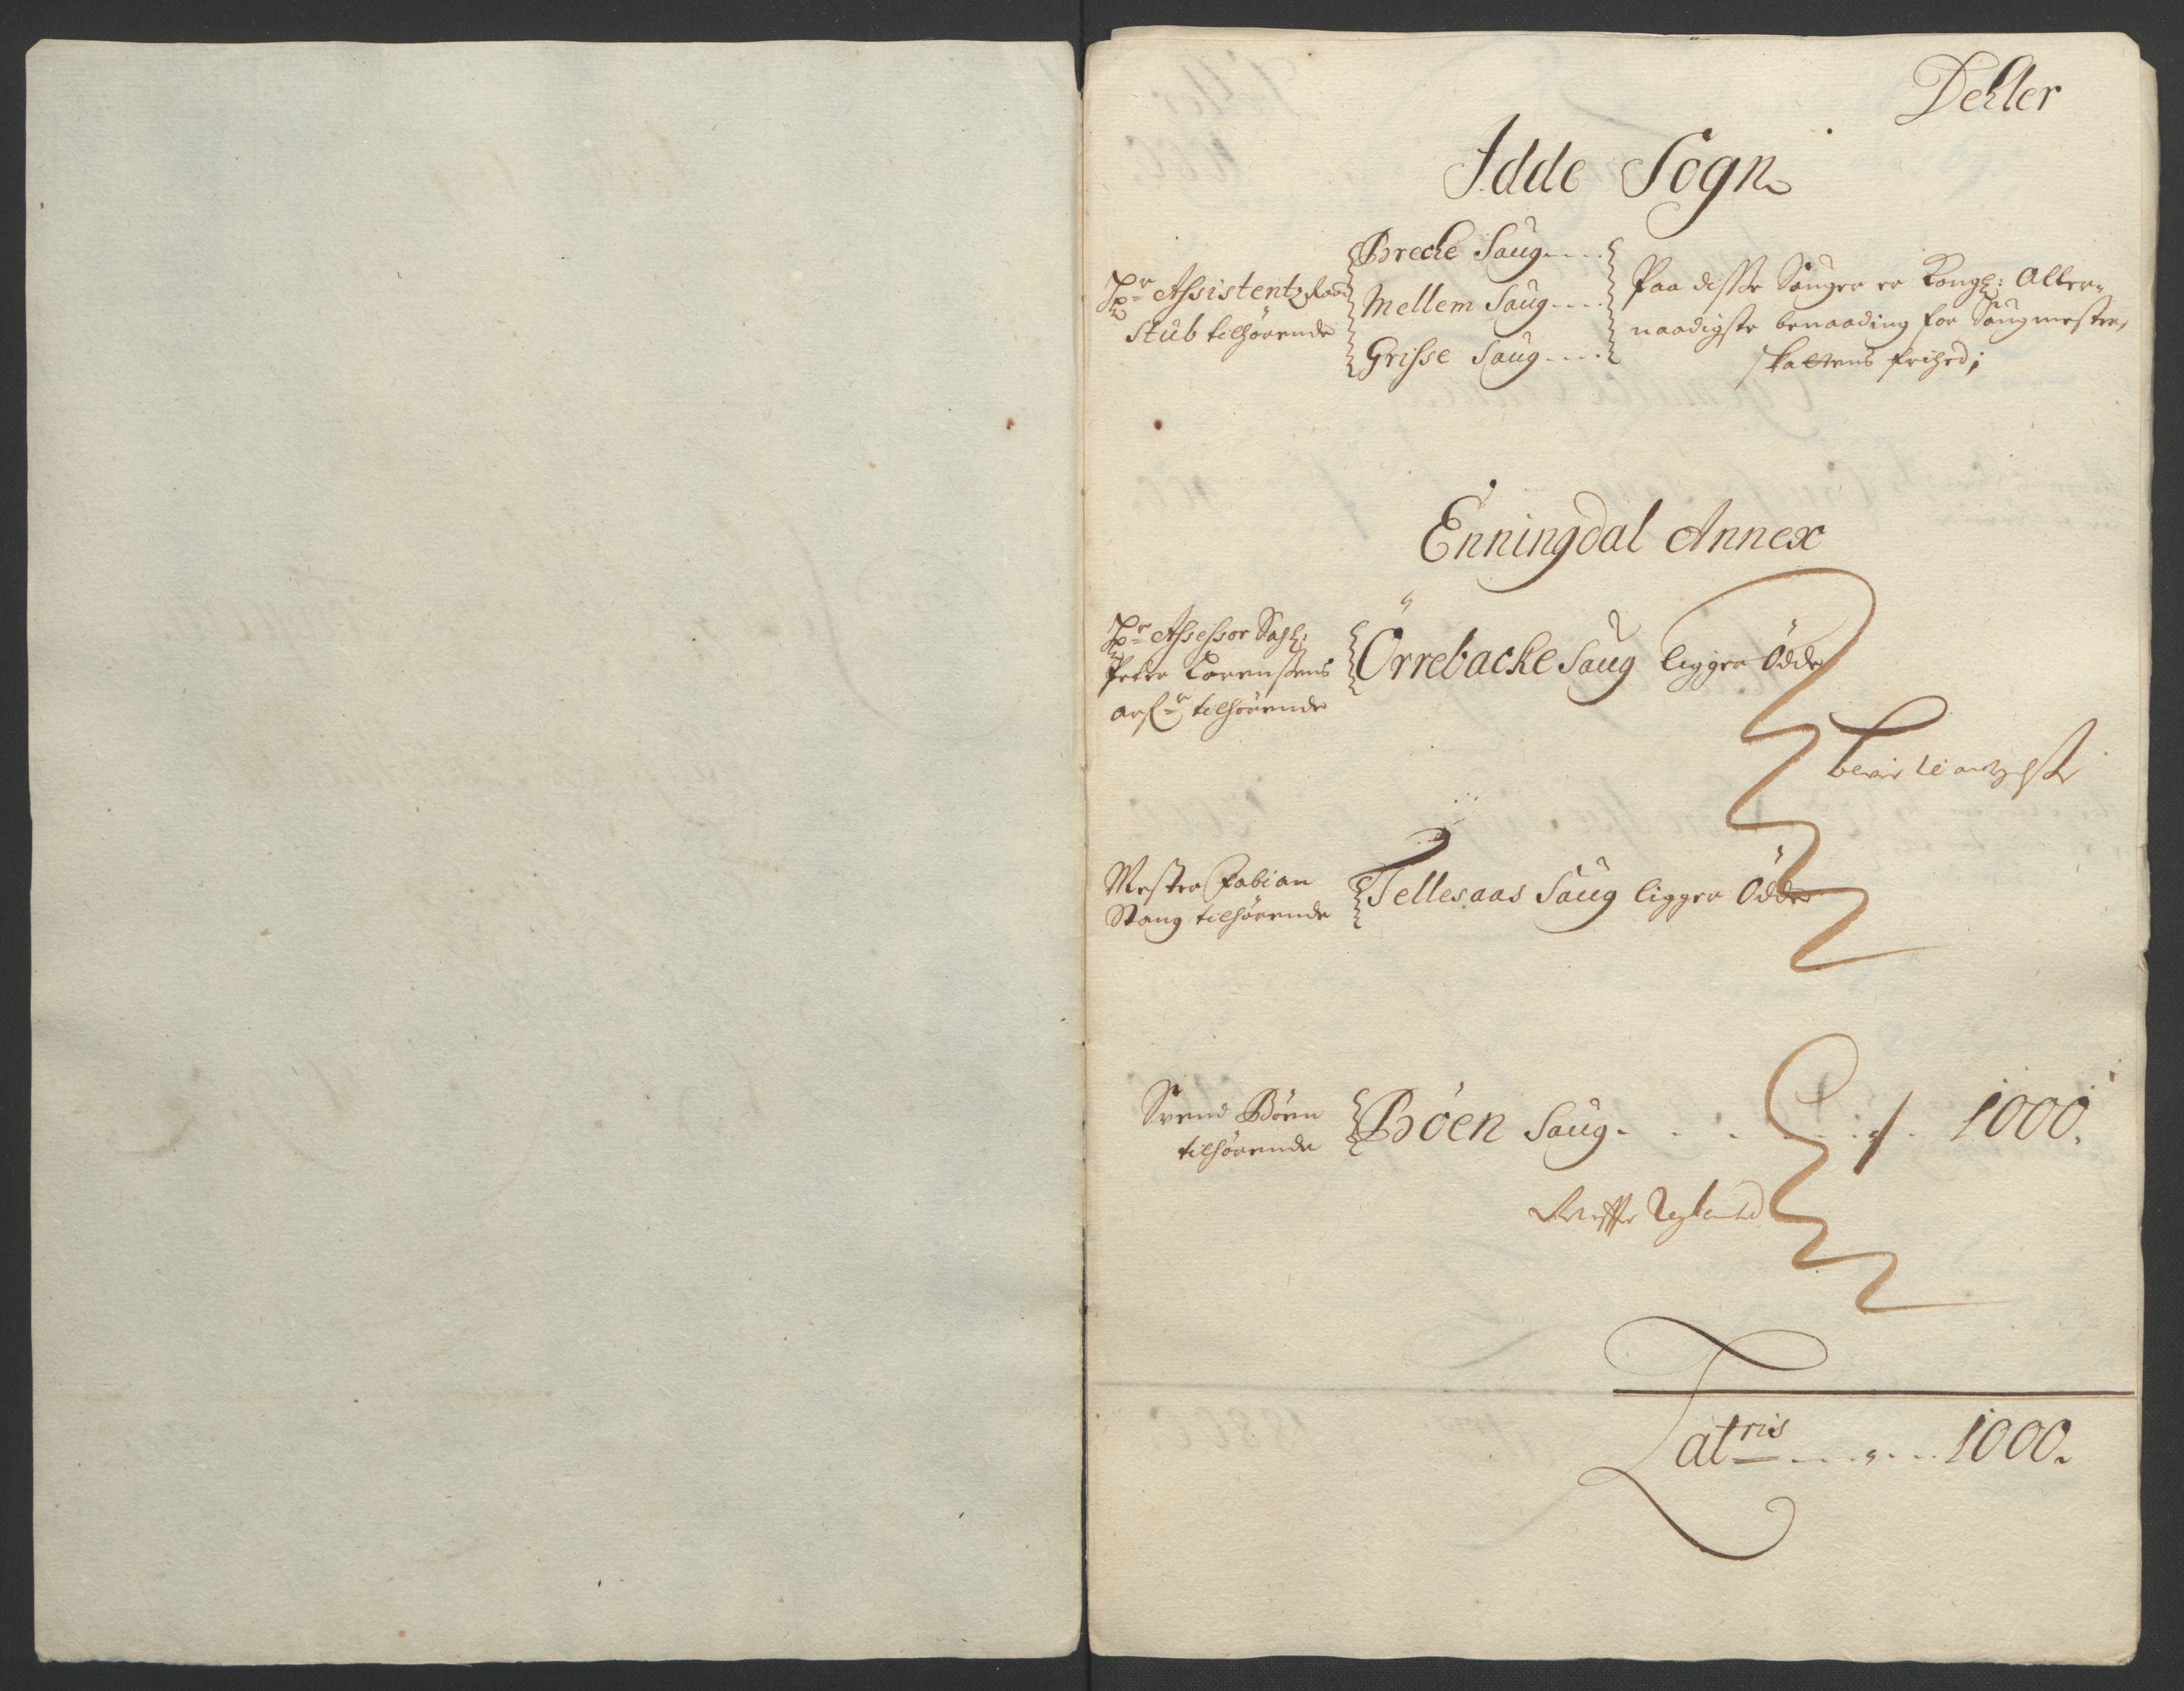 Deller
Idde Sogn
Hr Assistentz Raad
Stub tilhørende
Brecke Saug
Mellem Saug
Grisse Saug
Paa disse Sauger er Kongl: Aller-
naadigste benaading for Saugmester
skattens frihed;
Enningdal Annex
Hr Assessor Sahl:
Peter Lorensens
arf:r tilhørende
Örrebacke Saug ligger Öde
Mester Fabian
Stang tilhørende
Tellesaas Saug ligger Öde
Svend Böen
tilhørende
Böen Saug 1000.
Latris 1000.